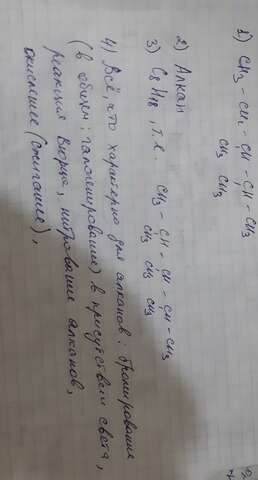 1) CH3 - CH2 - CH - CH - CH3
CH3 CH3
2) Алкан
3) C8H18, т.к. CH3 - CH - CH - CH - CH3
CH3 CH3 CH3
4) Всё, что характерно для алканов: бромирование
(в общем: галогенирование) в присутствии света,
реакция Вюрца, нитрование алканов,
окисление (сжигание),